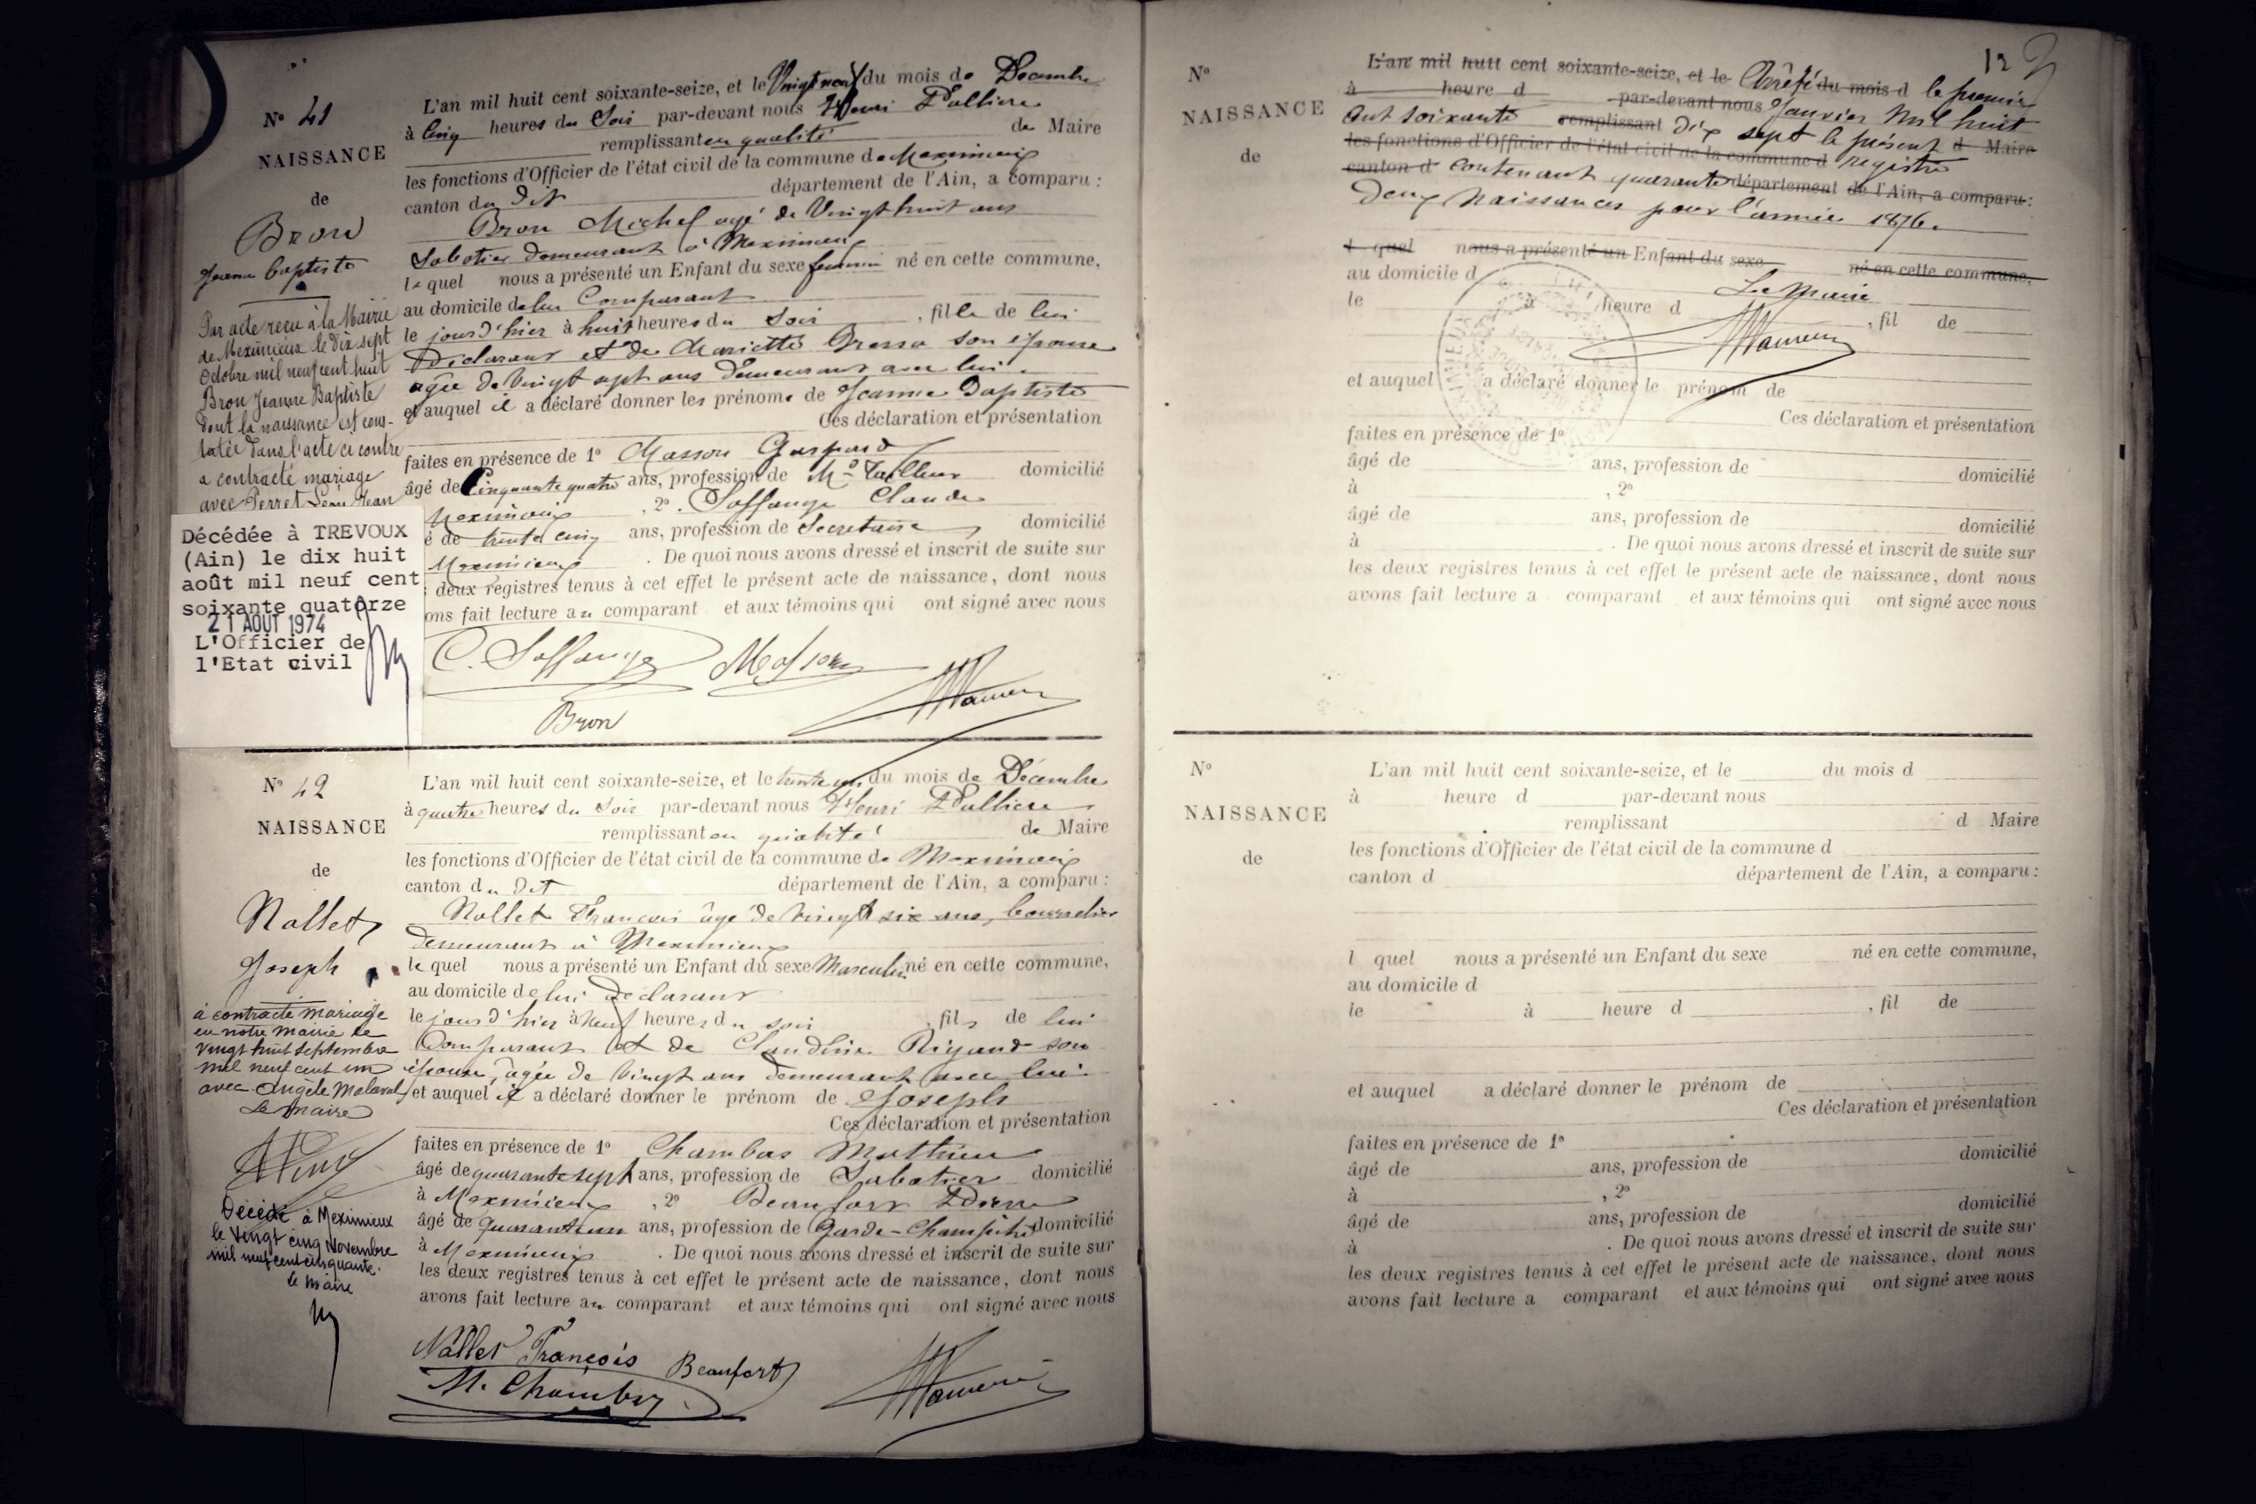 N° 41
NAISSANCE
de
Bron
Jeanne baptiste
Par acte reçu à la Mairie
de Meximieux le dix sept
Octobre mil neuf cent huit
Bron Jeanne Baptiste
dont la naissance est cons-
tatée dans l'acte ci contre
a contracté mariage
avec Perret Léon Jean
Décédée à TREVOUX
(Ain) le dix huit
août mil neuf cent
soixante quatorze
21 AOUT 1974
L'Officier de
l'Etat civil
L'an mil huit cent soixante-seize, et le Vingt neuf du mois de Decembre
à Cinq heures du Soir par-devant nous Henri
remplissant en qualité de Maire
les fonctions d'Officier de l'état civil de la commune de Meximieux
canton du dit département de l'Ain, a comparu :
Bron Michel agé de Vingt huit ans
Sabotier demeurant à Meximieux
le quel nous a présenté un Enfant du sexe feminin né en cette commune,
au domicile de lui Comparant
le jour d'hier à huit heures du Soir , fille de lui
Déclarant et de Mariette son épouse
agée de Vingt sept ans demeurant avec lui
et auquel il a déclaré donner les prénoms de Jeanne Baptiste
Ces déclaration et présentation
faites en présence de 1° Masson Gaspard
âgé de Cinquante quatre ans, profession de Md Tailleur domicilié
Meximieux , 2° Claude
é de trente cinq ans, profession de Secretaire domicilié
Meximieux . De quoi nous avons dressé et inscrit de suite sur
deux registres tenus à cet effet le présent acte de naissance, dont nous
ons fait lecture au comparant et aux témoins qui ont signé avec nous
C. Masson
Bron
N° 42
NAISSANCE
de
Nallet
Joseph
a contracté mariage
en notre mairie le
vingt huit septembre
mil neuf cent un
avec Angèle Malaval
Le Maire
Décédé à Meximieux
le vingt cinq Novembre
mil neuf cent cinquante.
le Maire
L'an mil huit cent soixante-seize, et le trente un du mois de Décembre
à quatre heures du Soir par-devant nous Henri
remplissant en qualité de Maire
les fonctions d'Officier de l'état civil de la commune de Meximieux
canton du dit département de l'Ain, a comparu :
Nallet François âgé de vingt six ans, bourrelier
demeurant à Meximieux
le quel nous a présenté un Enfant du sexe Masculin né en cette commune,
au domicile de lui Déclarant
le jour d'hier à neuf heures du soir , fils de lui
Comparant et de Claudine Rigaud son
épouse, agée de vingt ans demeurant avec lui
et auquel il a déclaré donner le prénom de Joseph
Ces déclaration et présentation
faites en présence de 1° Chambas Mathieu
âgé de quarante sept ans, profession de Sabotier domicilié
à Meximieux , 2° Beaufort Pierre
âgé de quarante un ans, profession de Garde-Champêtre domicilié
à Meximieux . De quoi nous avons dressé et inscrit de suite sur
les deux registres tenus à cet effet le présent acte de naissance, dont nous
avons fait lecture au comparant et aux témoins qui ont signé avec nous
Nallet François Beaufort
M.
12
N°
NAISSANCE
de
L'an mil huit cent soixante-seize, et le Arrêté du mois d le premier
à heure d par-devant nous Janvier mil huit
cent soixante remplissant dix sept le présent d Maire
les fonctions d'Officier de l'état civil de la commune d registre
canton d contenant quarante département de l'Ain, a comparu :
deux Naissances pour l'année 1876.
l quel nous a présenté un Enfant du sexe né en cette commune,
au domicile d
Le Maire
le à heure d , fil de
et auquel a déclaré donner le prénom de
Ces déclaration et présentation
faites en présence de 1°
âgé de ans, profession de domicilié
à , 2°
âgé de ans, profession de domicilié
à . De quoi nous avons dressé et inscrit de suite sur
les deux registres tenus à cet effet le présent acte de naissance, dont nous
avons fait lecture a comparant et aux témoins qui ont signé avec nous
N°
NAISSANCE
de
L'an mil huit cent soixante-seize, et le du mois d
à heure d par-devant nous
remplissant d Maire
les fonctions d'Officier de l'état civil de la commune d
canton d département de l'Ain, a comparu :
l quel nous a présenté un Enfant du sexe né en cette commune,
au domicile d
le à heure d , fil de
et auquel a déclaré donner le prénom de
Ces déclaration et présentation
faites en présence de 1°
âgé de ans, profession de domicilié
à , 2°
âgé de ans, profession de domicilié
à . De quoi nous avons dressé et inscrit de suite sur
les deux registres tenus à cet effet le présent acte de naissance, dont nous
avons fait lecture a comparant et aux témoins qui ont signé avec nous